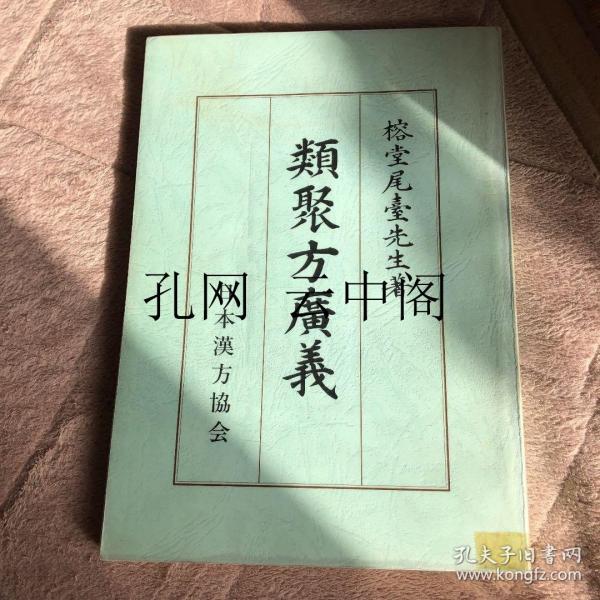 榕堂尾臺先生著
類聚方廣義
日本漢方協会
孔网 三中阁
孔夫子旧书网
www.kongfz.com